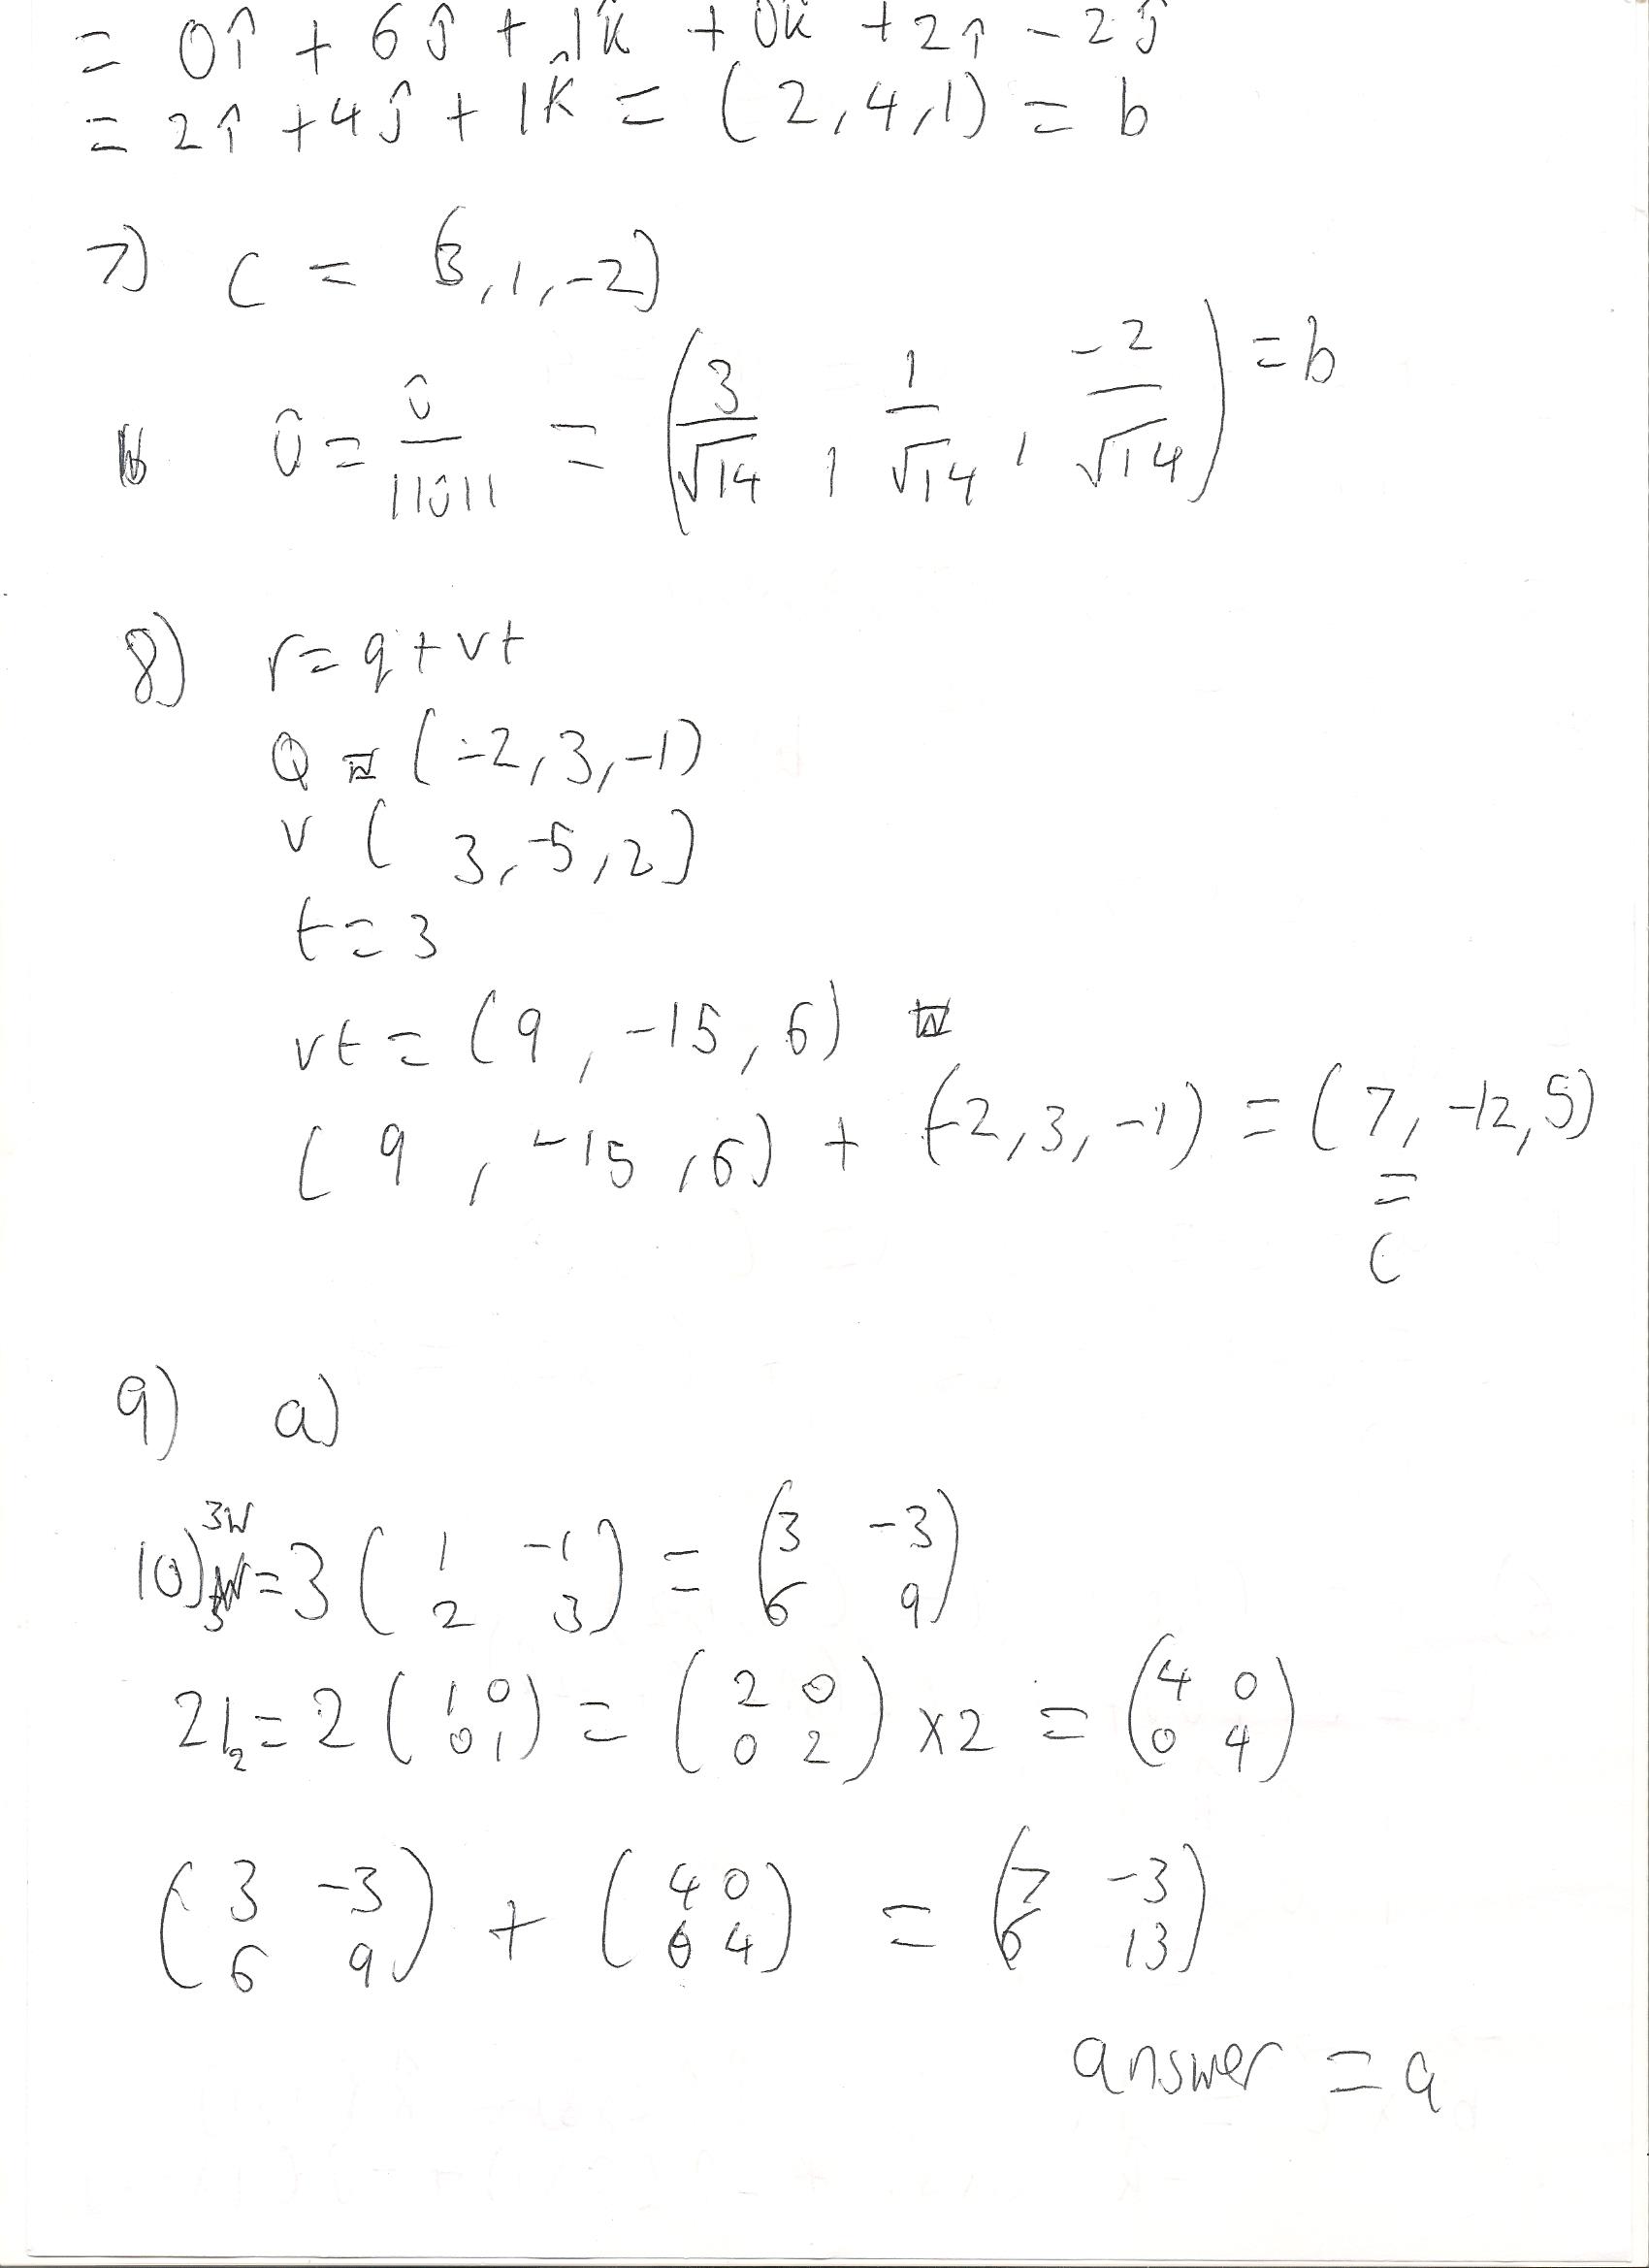 = 0î + 6ĵ + 1k̂ + 0k̂ + 2î - 2ĵ
= 2î + 4ĵ + 1k̂ = (2,4,1) = b
7) c = (3,1,-2)
û = û/||û|| = (3/√14, 1/√14, -2/√14) = b
8) r = q + vt
Q = (-2,3,-1)
v (3,-5,2)
t = 3
vt = (9, -15, 6)
(9, -15, 6) + (-2,3,-1) = (7, -12, 5)
=
c
9) a)
10) 3W = 3 (1 -1; 2 3) = (3 -3; 6 9)
2I₂ = 2 (1 0; 0 1) = (2 0; 0 2) x2 = (4 0; 0 4)
(3 -3; 6 9) + (4 0; 0 4) = (7 -3; 6 13)
answer = a